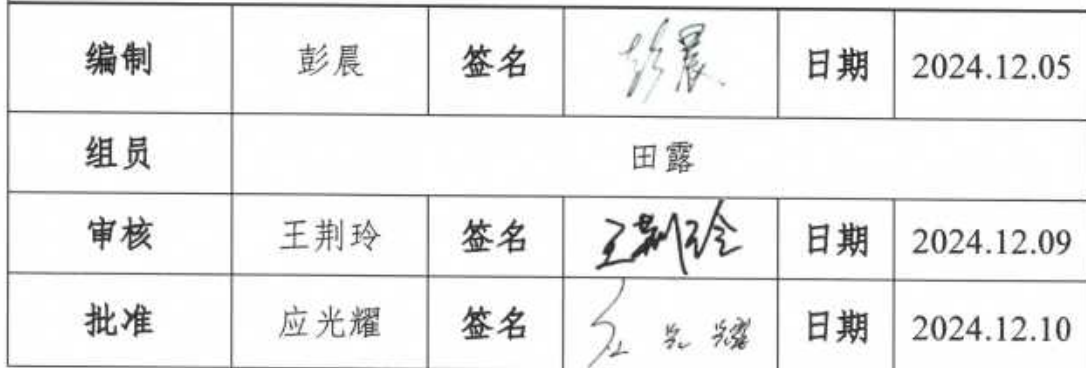 编制 彭晨 签名 彭晨 日期 2024.12.05
组员 田露
审核 王荆玲 签名 王荆玲 日期 2024.12.09
批准 应光耀 签名 应光耀 日期 2024.12.10